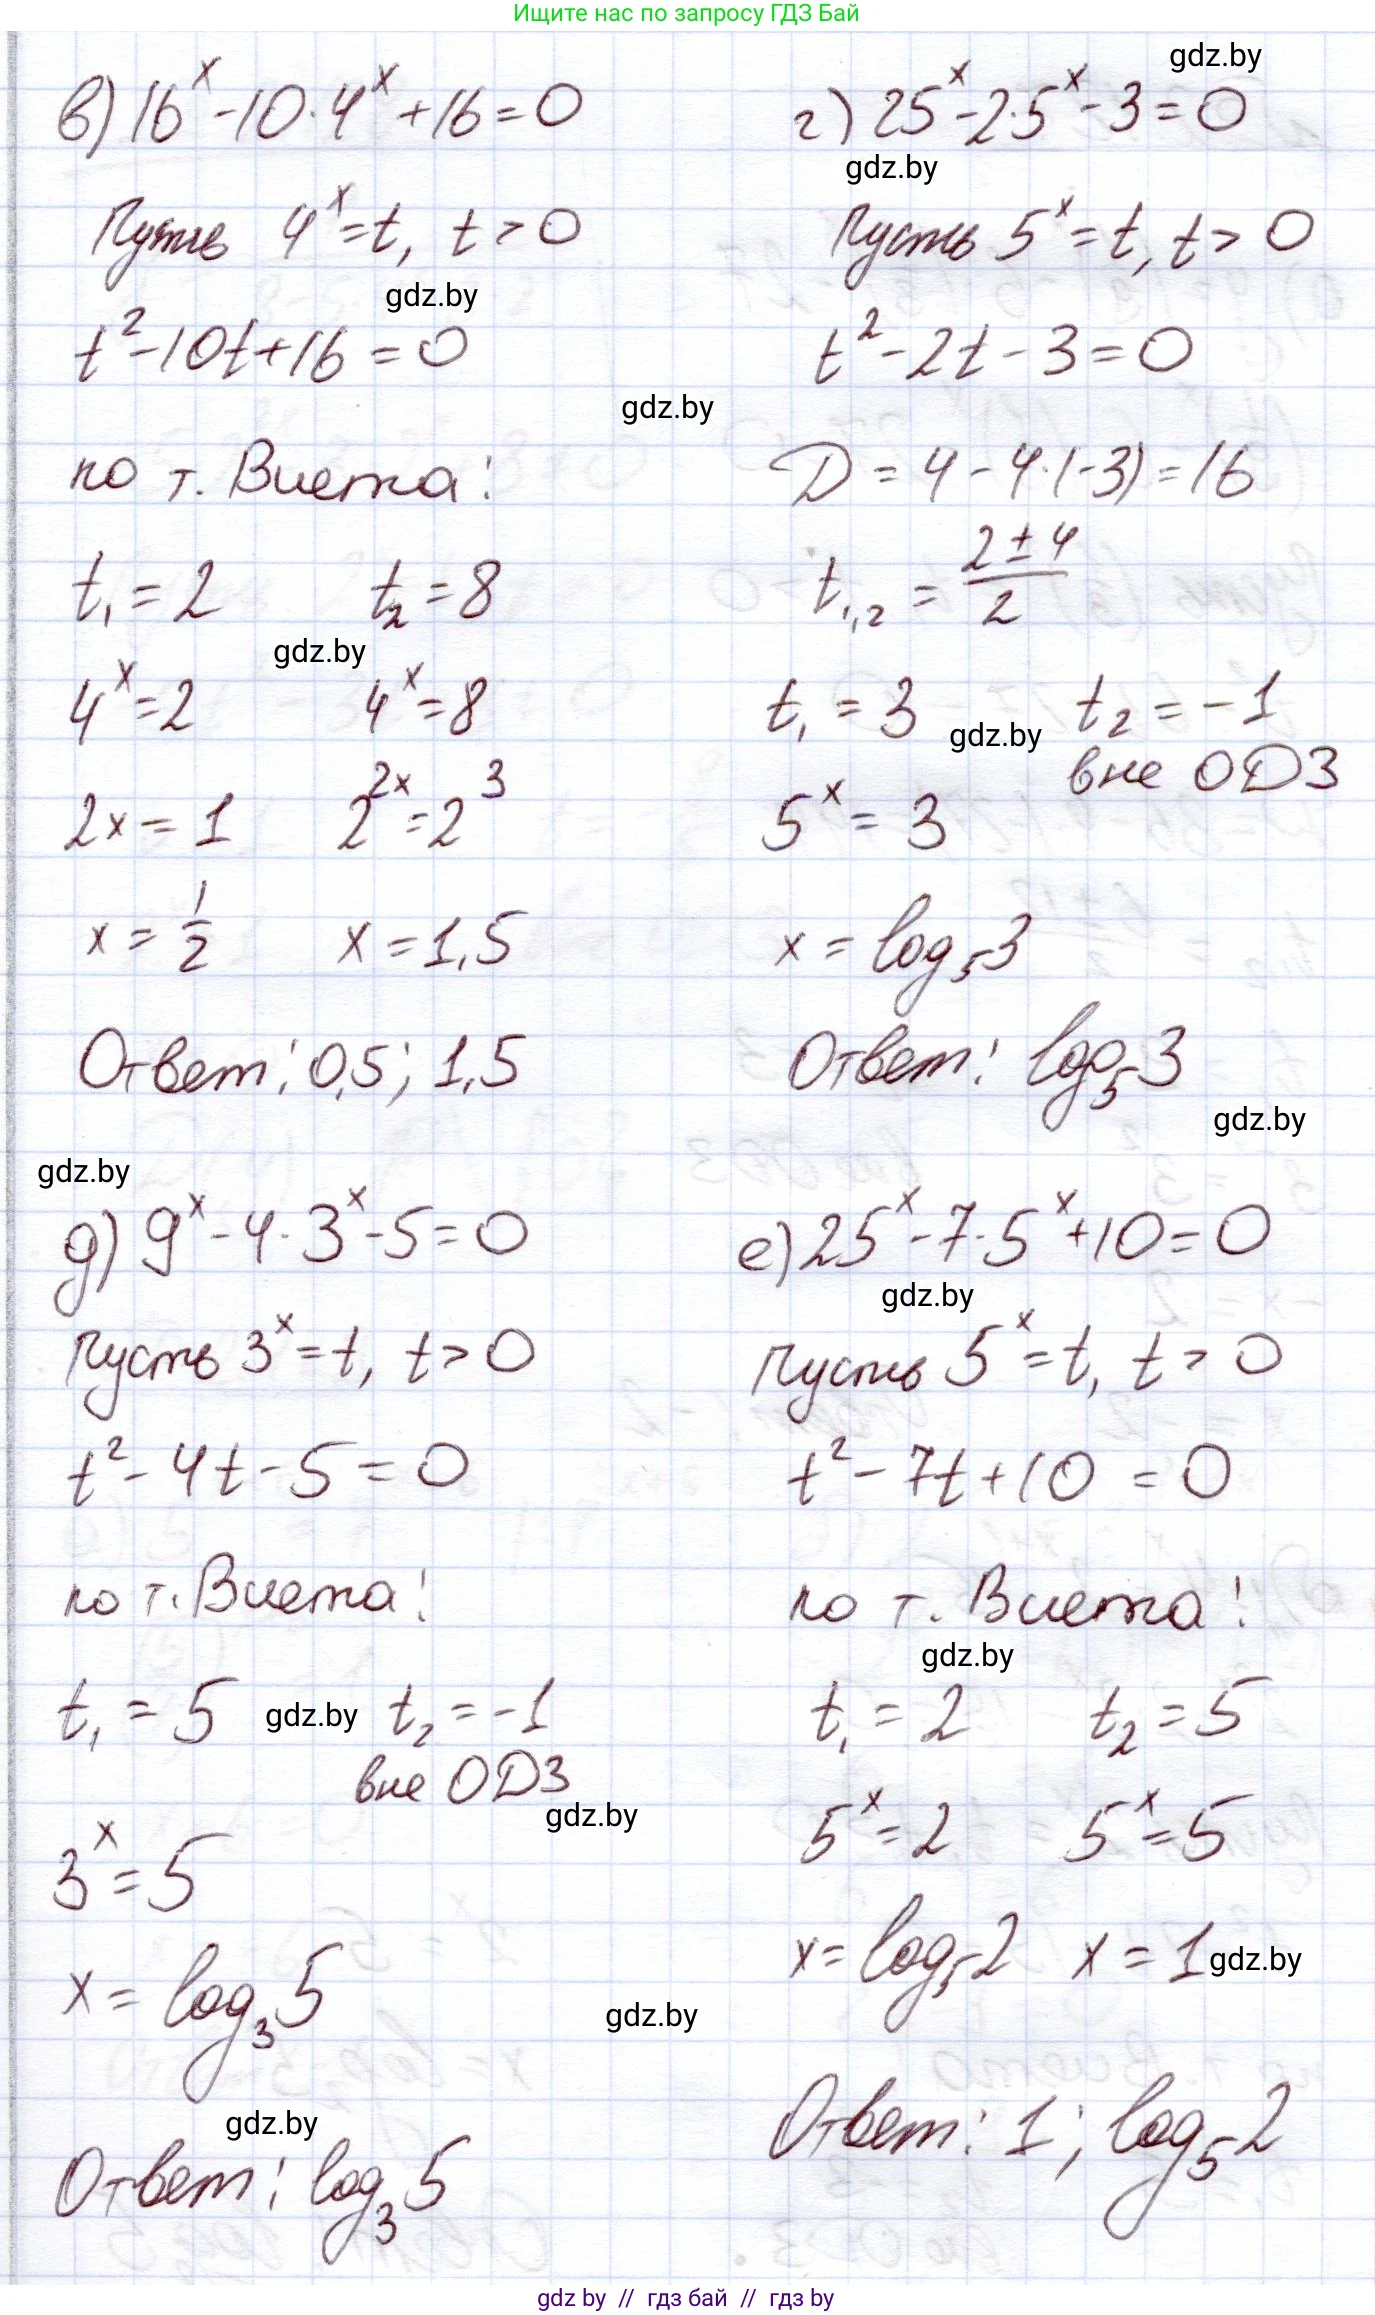 Ищите нас по запросу ГДЗ Бай
gdz.by
в) 16^x - 10·4^x + 16 = 0
Пусть 4^x = t, t > 0
gdz.by
t^2 - 10t + 16 = 0
gdz.by
по т. Виета:
t_1 = 2 t_2 = 8
gdz.by
4^x = 2 4^x = 8
2x = 1 2^{2x} = 2^3
x = 1/2 x = 1,5
Ответ: 0,5; 1,5
г) 25^x - 2·5^x - 3 = 0
gdz.by
Пусть 5^x = t, t > 0
t^2 - 2t - 3 = 0
D = 4 - 4·(-3) = 16
t_{1,2} = (2 ± 4)/2
t_1 = 3 gdz.by t_2 = -1
вне ОДЗ
5^x = 3
x = log_5 3
Ответ: log_5 3
gdz.by
gdz.by
д) 9^x - 4·3^x - 5 = 0
Пусть 3^x = t, t > 0
t^2 - 4t - 5 = 0
по т. Виета:
t_1 = 5 gdz.by t_2 = -1
вне ОДЗ
gdz.by
3^x = 5
x = log_3 5
gdz.by
gdz.by
Ответ: log_3 5
е) 25^x - 7·5^x + 10 = 0
gdz.by
Пусть 5^x = t, t > 0
t^2 - 7t + 10 = 0
по т. Виета:
gdz.by
t_1 = 2 t_2 = 5
5^x = 2 5^x = 5
x = log_5 2 x = 1 gdz.by
Ответ: 1; log_5 2
gdz by // гдз бай // гдз by